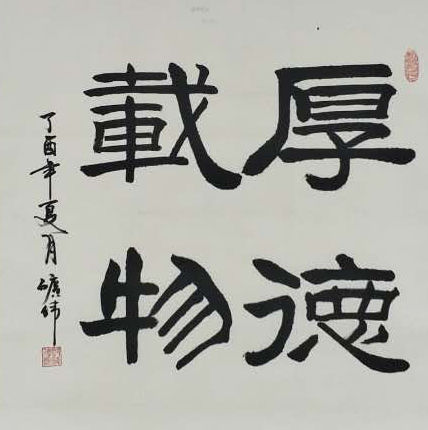 厚德
載物
丁酉年夏月礦伟